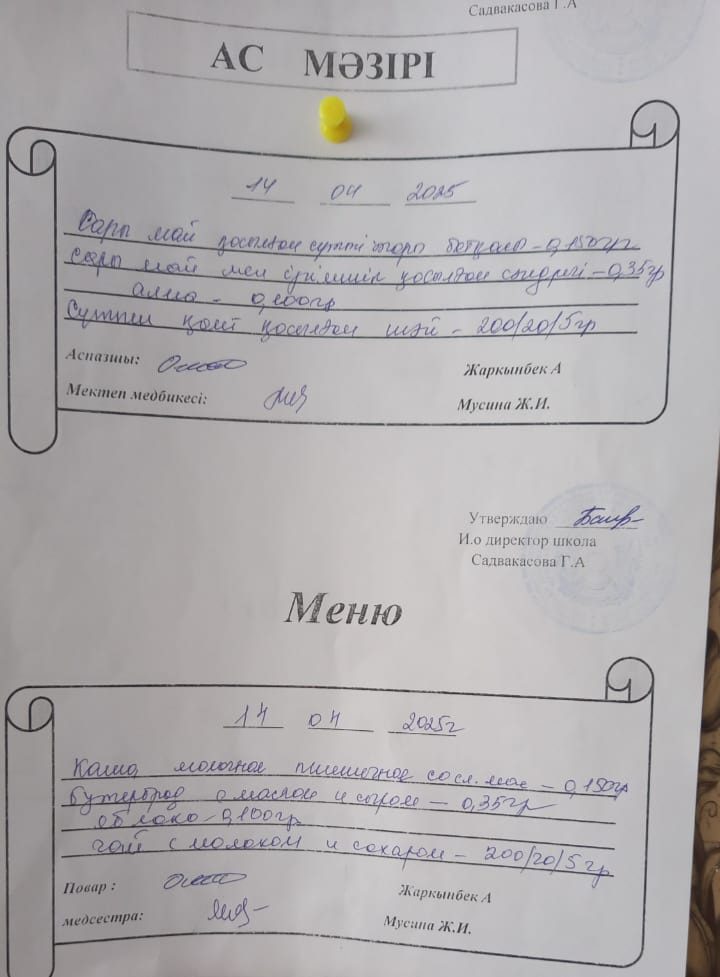 Садвакасова Г.А
АС МӘЗІРІ
14 04 2025
Сары май қосылған сүтті тары ботқасы - 0,150гр
Сары май мен ірімшік қосылған сэндвич - 0,35гр
алма - 0,100гр
Сүтпен қант қосылған шәй - 200/20/5гр
Аспазшы: Жаркынбек А
Мектеп медбикесі: Мусина Ж.И.
Утверждаю
И.о директор школа
Садвакасова Г.А
Меню
14 04 2025г
Каша молочное пшеничное со сл. мас - 0,150гр
Бутерброд с маслом и сыром - 0,35гр
яблоко - 0,100гр
чай с молоком и сахаром - 200/20/5 гр
Повар : Жаркынбек А
медсестра: Мусина Ж.И.